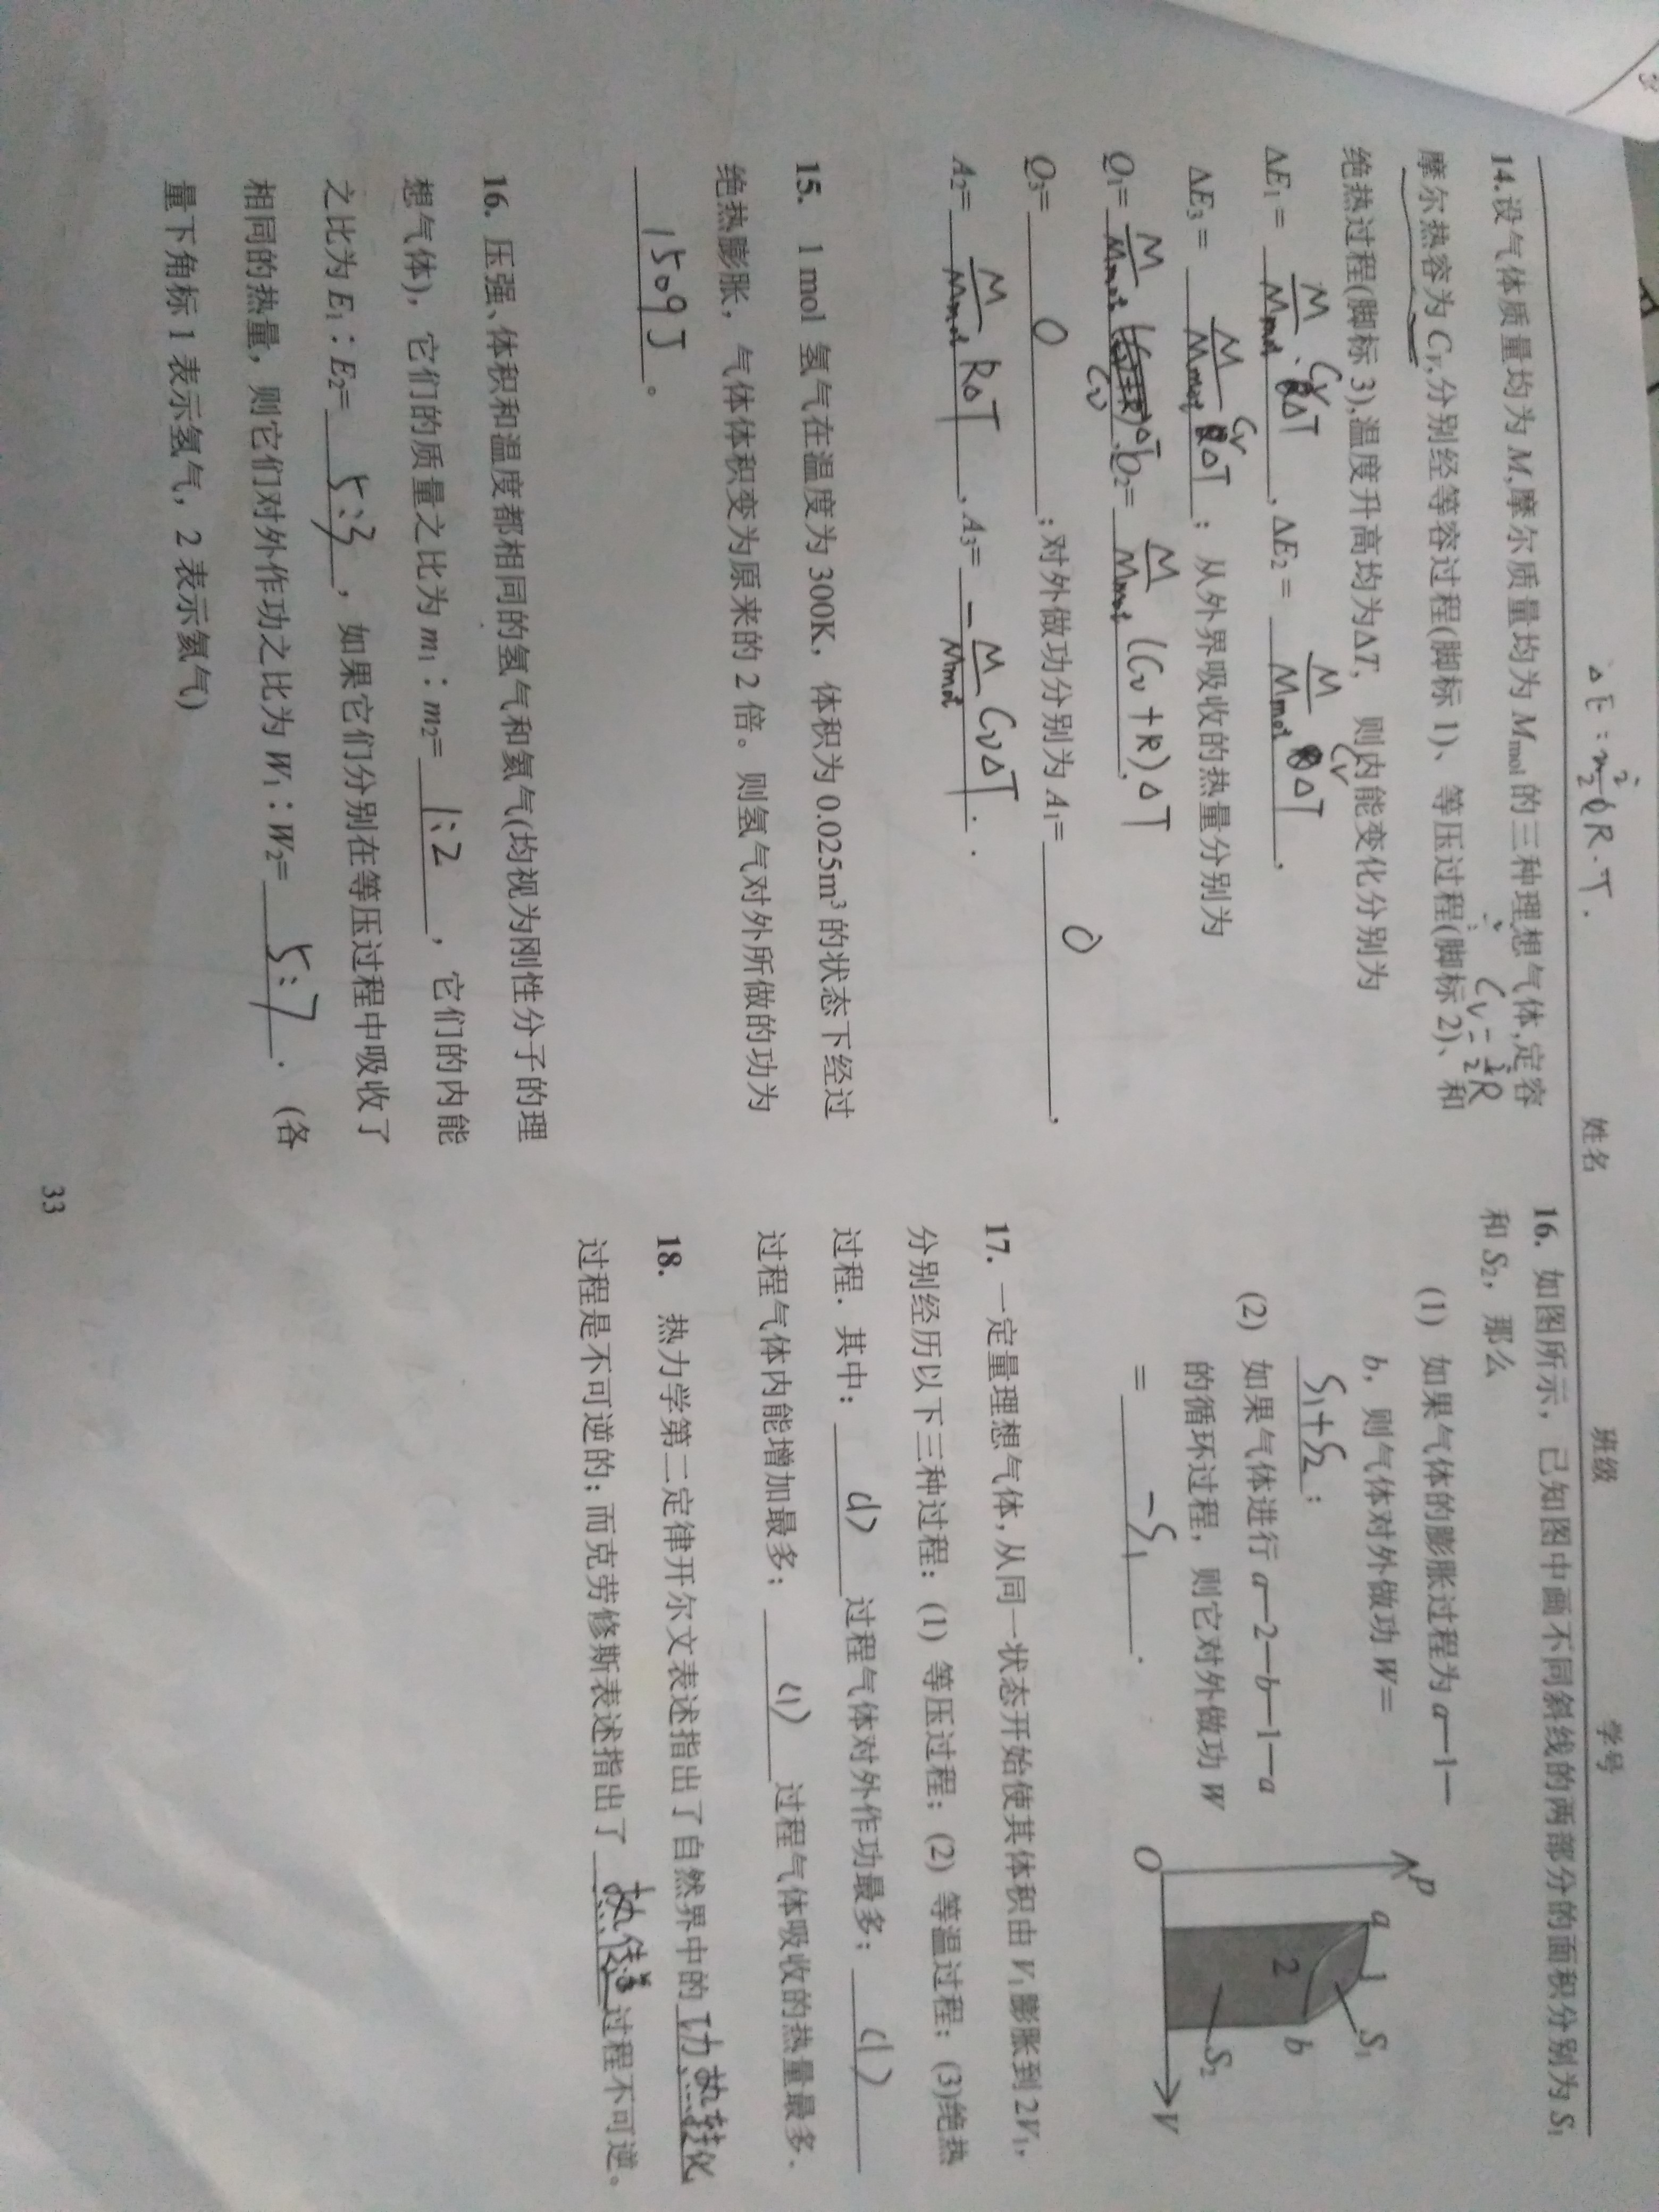 ΔE = m i/2 R·T.
姓名 班级 学号
14.设气体质量均为 M,摩尔质量均为 Mmol 的三种理想气体,定容
Cv = i/2 R
摩尔热容为 CV,分别经等容过程(脚标 1)、等压过程(脚标 2)、和
绝热过程(脚标 3),温度升高均为ΔT, 则内能变化分别为
ΔE1 = M/Mmol · Cv ΔT , ΔE2 = M/Mmol Cv ΔT ,
ΔE3 = M/Mmol Cv ΔT ; 从外界吸收的热量分别为
Q1= M/Mmol Cv ΔT . Q2= M/Mmol (Cv + R) ΔT ,
Q3= 0 ;对外做功分别为 A1= 0 ,
A2= M/Mmol RΔT , A3= - M/Mmol CvΔT .
15. 1 mol 氢气在温度为 300K, 体积为 0.025m³ 的状态下经过
绝热膨胀, 气体体积变为原来的 2 倍。则氢气对外所做的功为
1509J 。
16. 压强、体积和温度都相同的氢气和氦气(均视为刚性分子的理
想气体), 它们的质量之比为 m1 : m2= 1:2 , 它们的内能
之比为 E1 : E2= 5:3 , 如果它们分别在等压过程中吸收了
相同的热量, 则它们对外作功之比为 W1 : W2= 5:7 . (各
量下角标 1 表示氢气, 2 表示氦气)
16. 如图所示, 已知图中画不同斜线的两部分的面积分别为 S1
和 S2, 那么
(1) 如果气体的膨胀过程为 a—1—
b, 则气体对外做功 W=
S1+S2 ;
(2) 如果气体进行 a—2—b—1—a
的循环过程, 则它对外做功 W
= -S1 .
P
a
1
S1
2
b
S2
O
V
17. 一定量理想气体,从同一状态开始使其体积由 V1 膨胀到 2V1,
分别经历以下三种过程: (1) 等压过程; (2) 等温过程; (3)绝热
过程. 其中: (1) 过程气体对外作功最多; (1)
过程气体内能增加最多; (1) 过程气体吸收的热量最多.
18. 热力学第二定律开尔文表述指出了自然界中的 功热转化
过程是不可逆的; 而克劳修斯表述指出了 热传导 过程不可逆。
33